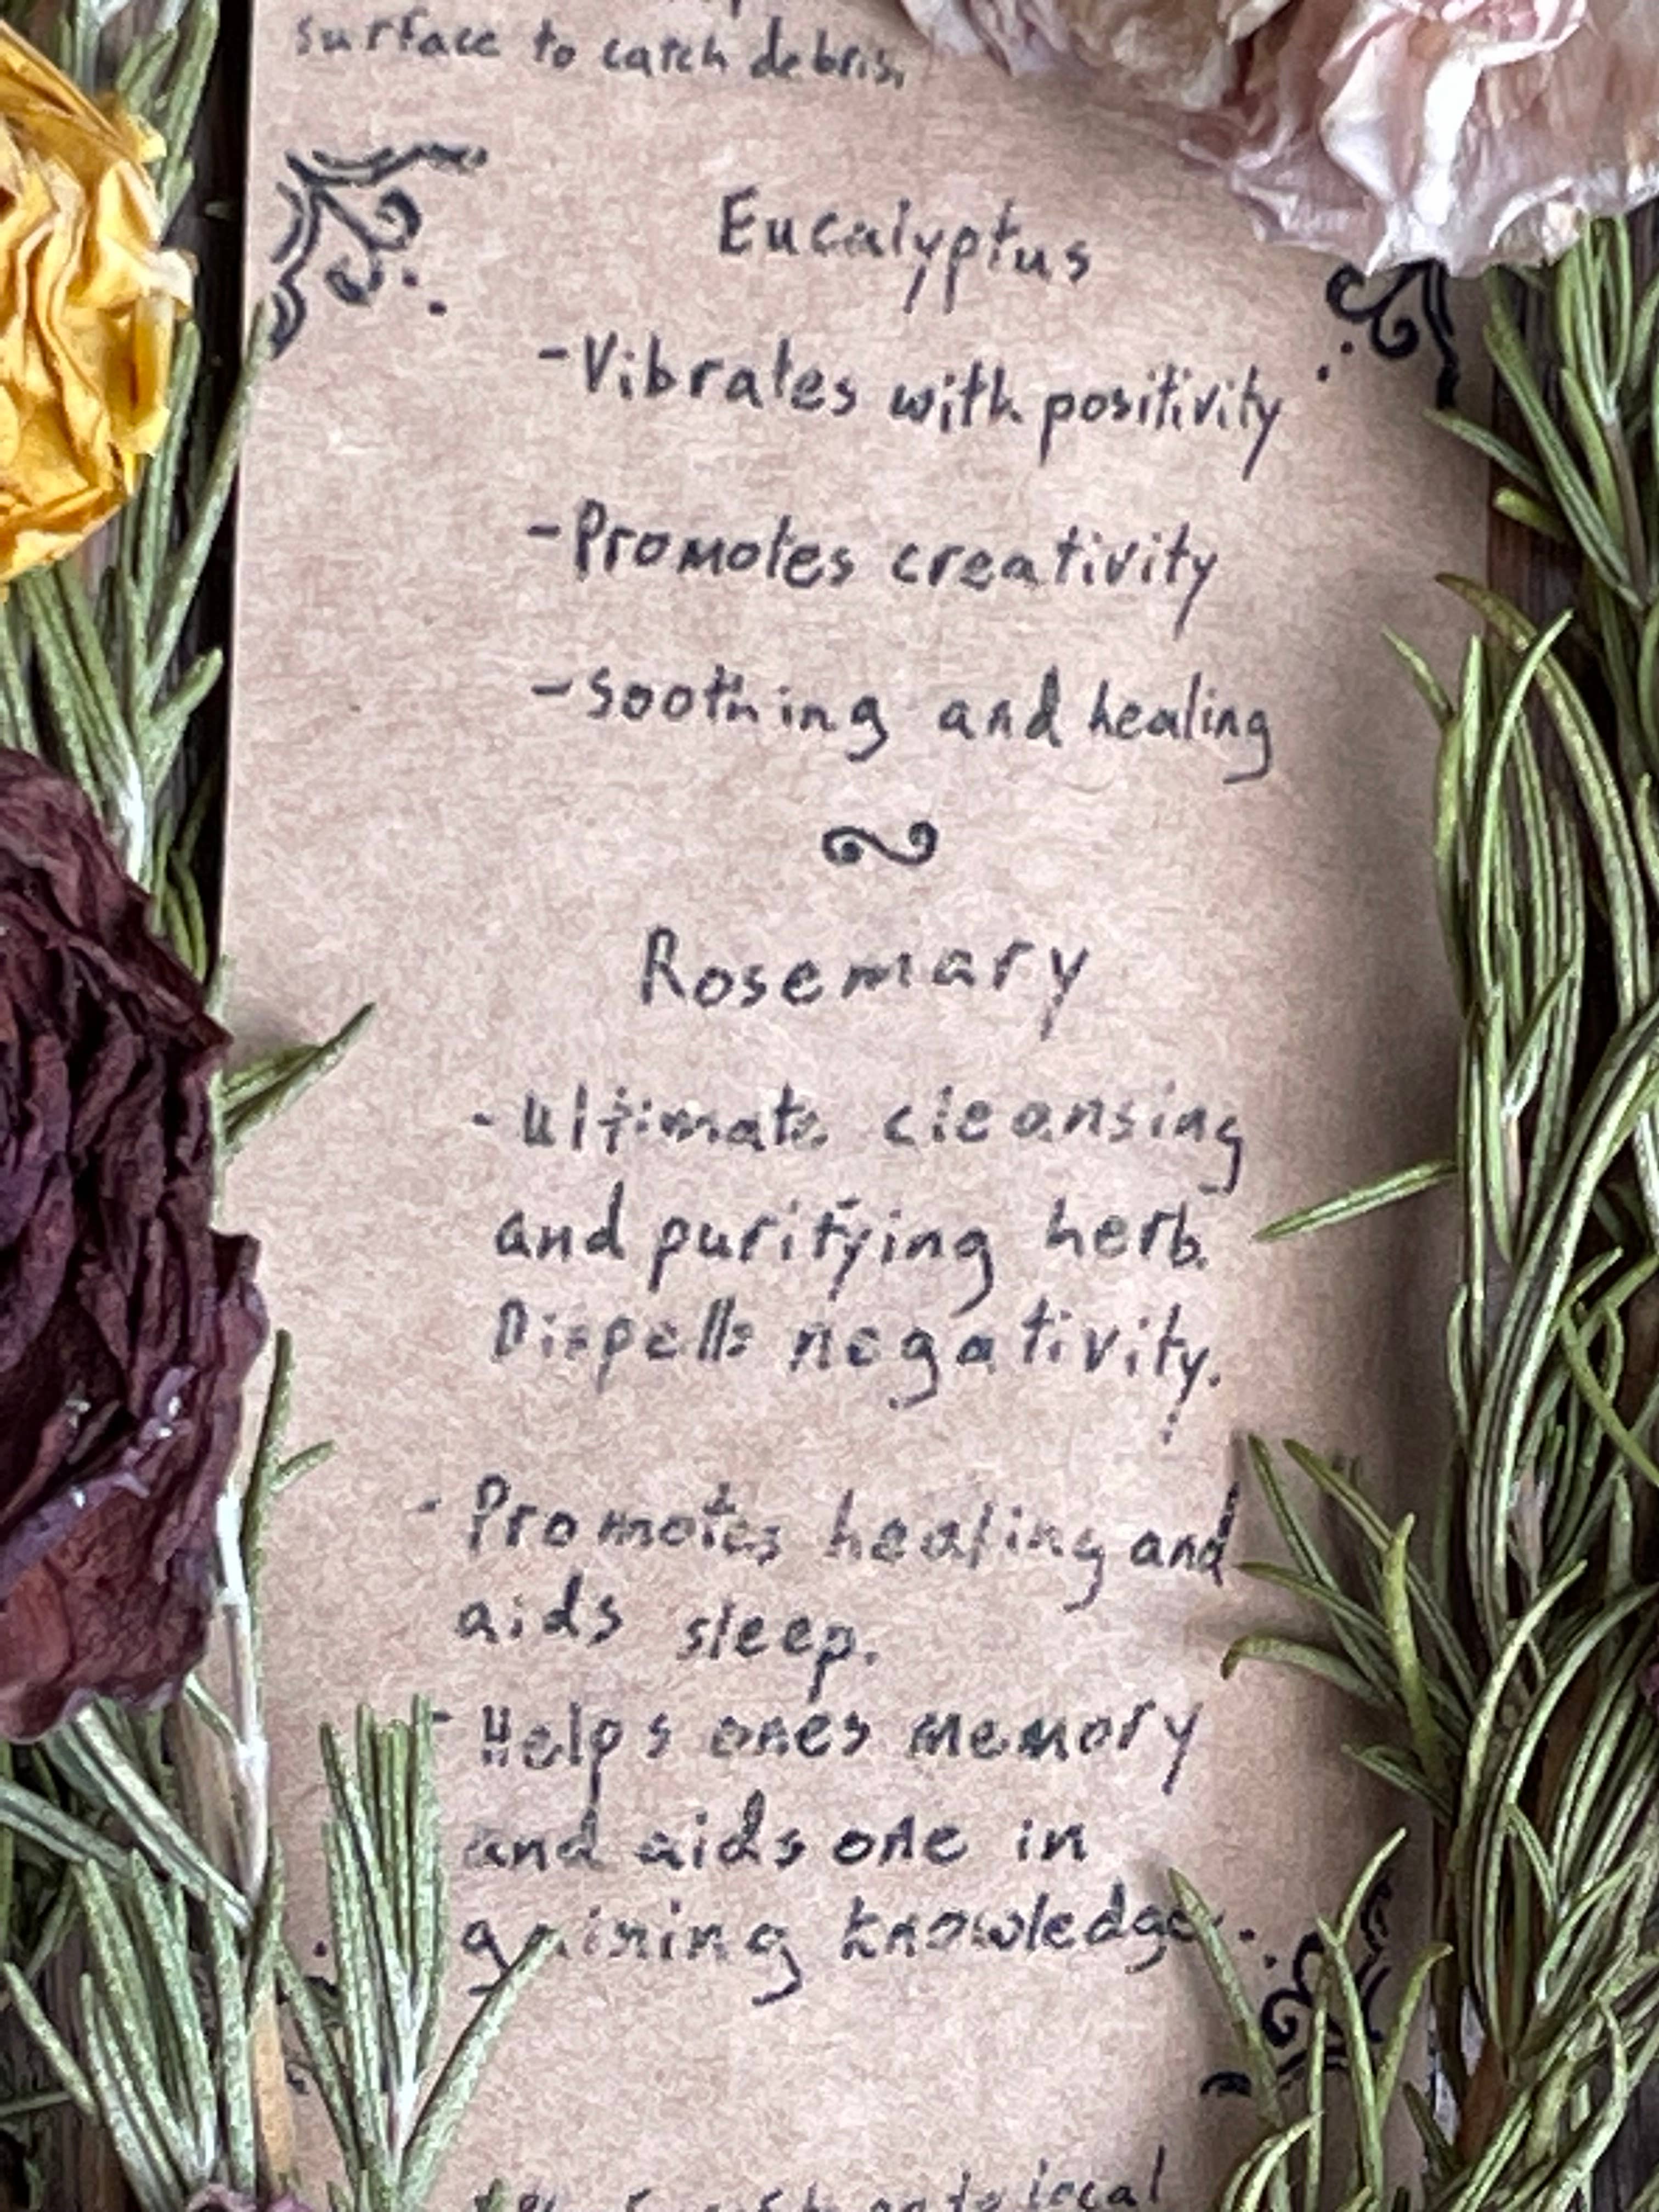 surface to catch debris.
Eucalyptus
-Vibrates with positivity
-Promotes creativity
-Soothing and healing
Rosemary
-Ultimate cleansing
and purifying herb.
Dispells negativity.
-Promotes healing and
aids sleep.
-Helps ones memory
and aids one in
gaining knowledge.
local